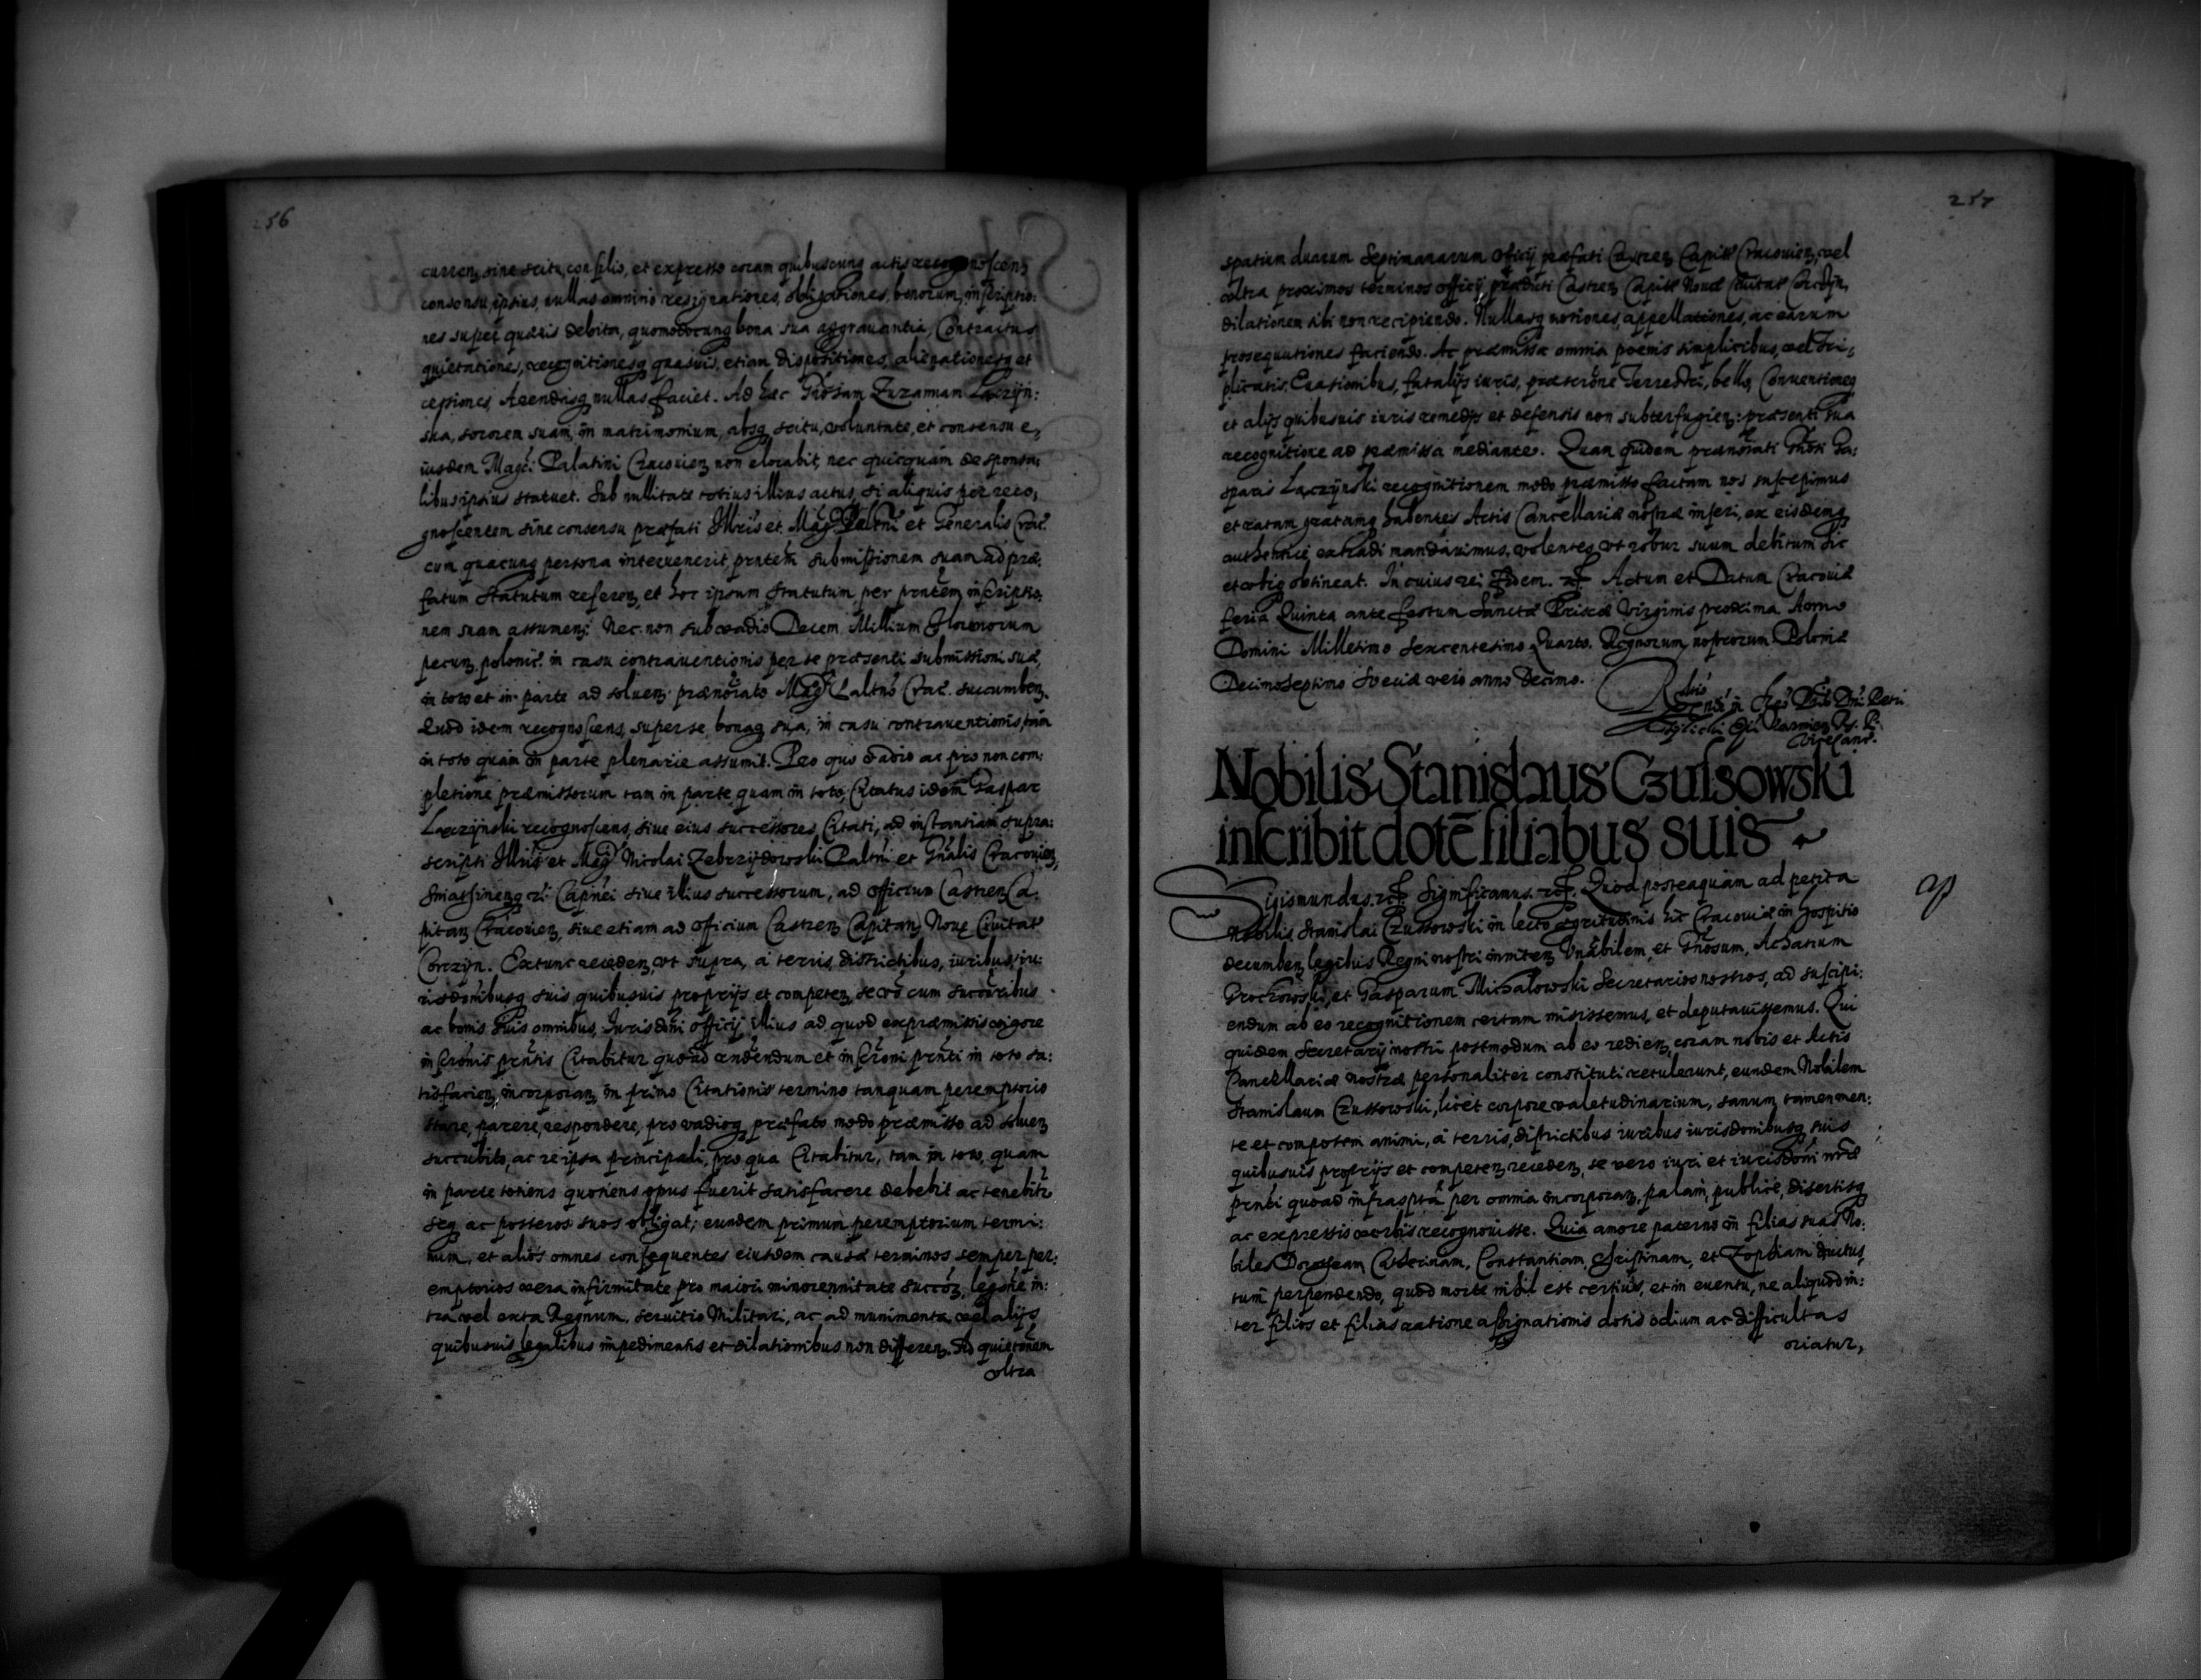 256
curren, sine scitu, consilio, et expresso coram quibuscunq actis recognoscen,
consensu, ipsius, nullas omnino resignationes, obligationes, bonorum, inscriptio:
nes super quævis debita, quomodocunq bona sua aggravantia, Contractus
quietationes, recognitionesq quasvis, etiam dispositiones, alienationesq et
ceptiones, Arendasq nullas faciet. Ad hæc Gñosam Zuzannam Łączÿn:
ska, sororem suam, in matrimonium, absq scitu, voluntate, et consensu e,
iusdem Magci Palatini Cracovien, non elocabit, nec quicquam de sponsa,
libus ipsius statuet. Sub nullitate totius illius actus, si aliquis per reco,
gnoscentem sine consensu præfati Illris et Magci Paltni et Generalis Crac.
cum quacunq persona intervenerit, pñtem submissionem suam ad præ,
fatum statutum referen, et hoc ipsum statutum per pñtem inscriptio,
nem suam assumens. Nec non sub vadio Decem Millium Florenorum
pecun. polonic. in casu contraventionis per se præsenti submissioni suæ,
in toto et in parte ad soluen. prænõiato Magco Paltno Crac. succumben.
Quod idem recognoscens, super se, bonaq sua, in casu contraventionis, tam
in toto quam in parte plenarie assumit. Pro quo vadio ac pro non com:
pletione præmissorum tam in parte quam in toto, Citatus idem Gaspar
Łączÿnski recognoscens, sive eius successores Citati, ad instantiam supra:
scripti Illris et Magci Nicolai Zebrzÿdowski Paltni et Gñalis Cracovien,
Sniatinenq etc Capñei sive illius successorum, ad officium Castren Ca.
pitan Cracovien, sive etiam ad officium Castren Capitan, Novæ Civitat
Corczÿn. Extunc receden, ut supra, a terris, districtibus, iuribus, iu:
risdõnibusq suis, quibusvis proprijs et competen, se võ cum succõribus
ac bonis suis omnibus, Iurisdõni officij illius ad quod expræmissis vigore
inscrõnis pñtis Citabitur quoad vadendum et inscrõni pñti in toto sa:
tisfacien, incorporan, in primo Citationis termino tanquam peremptorio
stare, parere, respondere, pro vadioq præfato modo præmisso ad soluen
succubito, ac re ipsa principali, pro qua Citabitur, tam in toto, quam
in parte totiens quotiens opus fuerit satisfacere debebit ac tenebitr
seq ac posteros suos obligat; eundem primum peremptorium termi:
num, et alios omnes consequentes eiusdem causæ terminos semper per:
emptorios vera infirmitate pro maiori minorennitate succõr, legõne in:
tra vel extra Regnum, servitio Militari, ac ad munimenta, vel alijs
quibusvis legalibus impedimentis et dilationibus non differen. Ad quietõnem
ultra
257
spatium duarum Septimanarum officij præfati Castren Capitt Cracovien, vel
ultra proximos terminos officij prædicti Castren Capitt Novæ Civitat Corczÿn,
dilationem sibi non recipiendo. Nullasq motiones, appellationes, ac earum
prosequutiones faciendo. Ac præmissa omnia poenis simplicibus, vel tri,
plicatis. Evasionibus, fatalijs iuris, præscrõne Terrestri, bello, Conventioneq
et alijs quibusvis iuris remedijs et defensis non subterfugien: præsenti sua
recognitione ad præmissa mediante. Quam quidem prænõiati Gñosi Ga:
sparis Łączÿnski recognitionem modo præmisso factam nos suscepimus
et ratam gratamq habentes Actis Cancellariæ nostræ inseri, ex eisdemq
authentice extradi mandavimus, volentes, ut robur suum debitum hic
et ubiq obtineat. In cuius rei fidem. etc. Actum et Datum Cracoviæ
feria Quinta ante festum Sanctæ Priscæ Virginis proxima Anno
Domini Millesimo Sexcentesimo Quarto. Regnorum nostrorum Poloniæ
Decimoseptimo Sveciæ vero anno Decimo.
Nobilis Stanislaus Czussowski
inscribit dotē filiabus suis
Sigismundus. etc. Significamus. etc. Quod posteaquam ad petita
Nobilis Stanislai Czussowski in lecto ægritudinis hic Cracoviæ in hospitio
decumben, legibus Regni nostri inniten, Vnabilem, et Gñosum, Acharium
Grochowski, et Gasparum Michalowski Secretarios nostros, ad suscipi:
endum ab eo recognitionem certam misissemus, et deputavissemus. Qui
quidem Secretarij nostri postmodum ab eo redien, coram nobis et Actis
Cancellariæ nostræ personaliter constituti retulerunt, eundem Nobilem
Stanislaum Czussowski, licet corpore valetudinarium, sanum tamen men:
te et compotem animi, a terris, districtibus iuribus iurisdonibusq suis
quibusvis proprijs et competen, receden, se vero iuri et iurisdõni nræ
pñti quoad infrascpta per omnia incorporan, palam, publice, disertisq
ac expressis verbis recognovisse. Quia amore paterno in filias suas No:
biles Dorotheam Catherinam, Constantiam, Christinam, et Zophiam ductus,
tum perpendendo, quod morte nihil est certius, et in eventu, ne aliquod in:
ter filios et filias ratione assignationis dotis odium ac difficultas
oriatur,